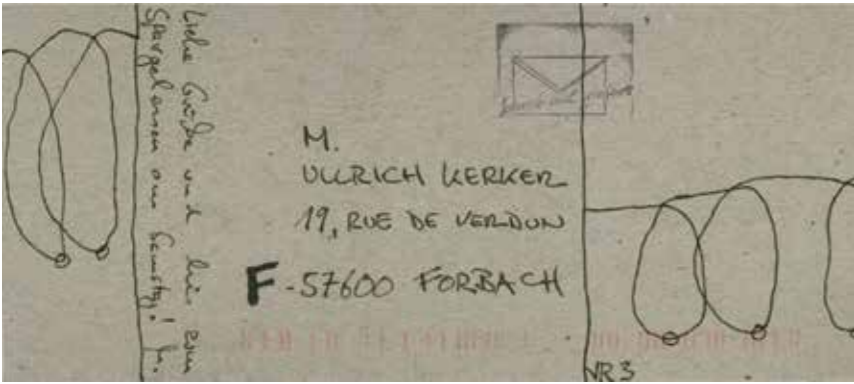 Liebe Grüße und bis zum
Spargelessen am Samstag! M.
M.
ULLRICH KERKER
19, RUE DE VERDUN
F-57600 FORBACH
NR3